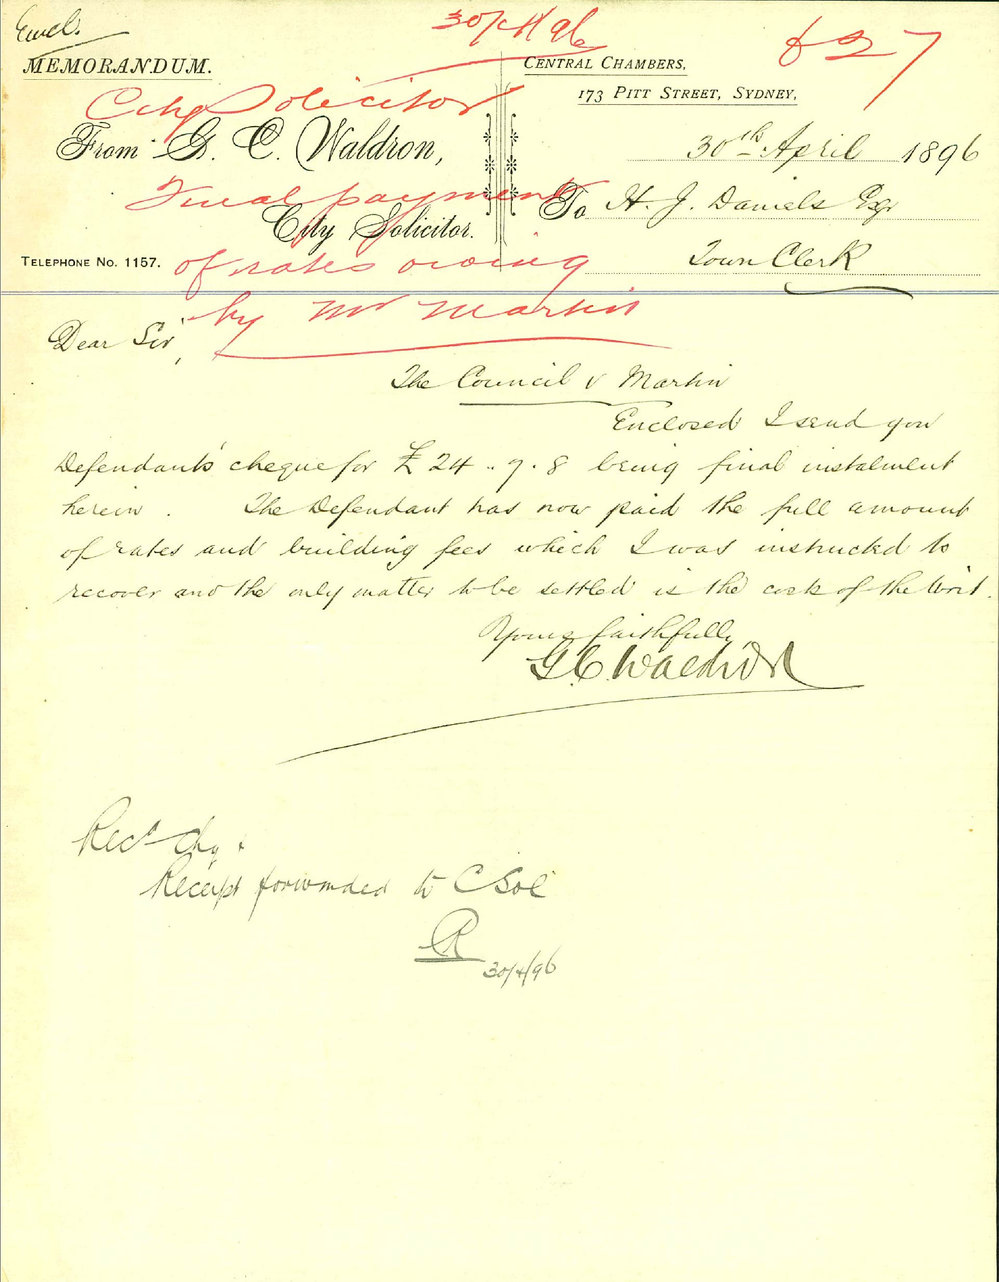 Encl.
30/4/96
627
MEMORANDUM.
CENTRAL CHAMBERS,
173 PITT STREET, SYDNEY,
City Solicitor
From G. C. Waldron,
30th April 1896
Final payment
To H. J. Daniels Esqr
City Solicitor.
TELEPHONE No. 1157.
of rates owing
Town Clerk
by Mr Martin
Dear Sir,
The Council v Martin
Enclosed I send you
Defendant's cheque for £24..7.8 being final instalment
herein. The Defendant has now paid the full amount
of rates and building fees which I was instructed to
recover and the only matter to be settled is the costs of the Writ.
Yours faithfully
G C Waldron
Recd Chq &
Receipt forwarded to C Sol
R
30/4/96